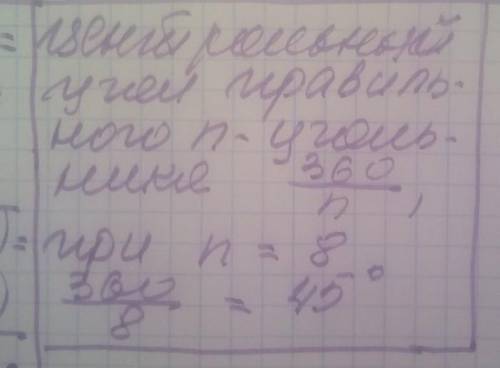 центральный
угол правиль-
ного n-уголь-
нике 360/n,
при n = 8
360/8 = 45°